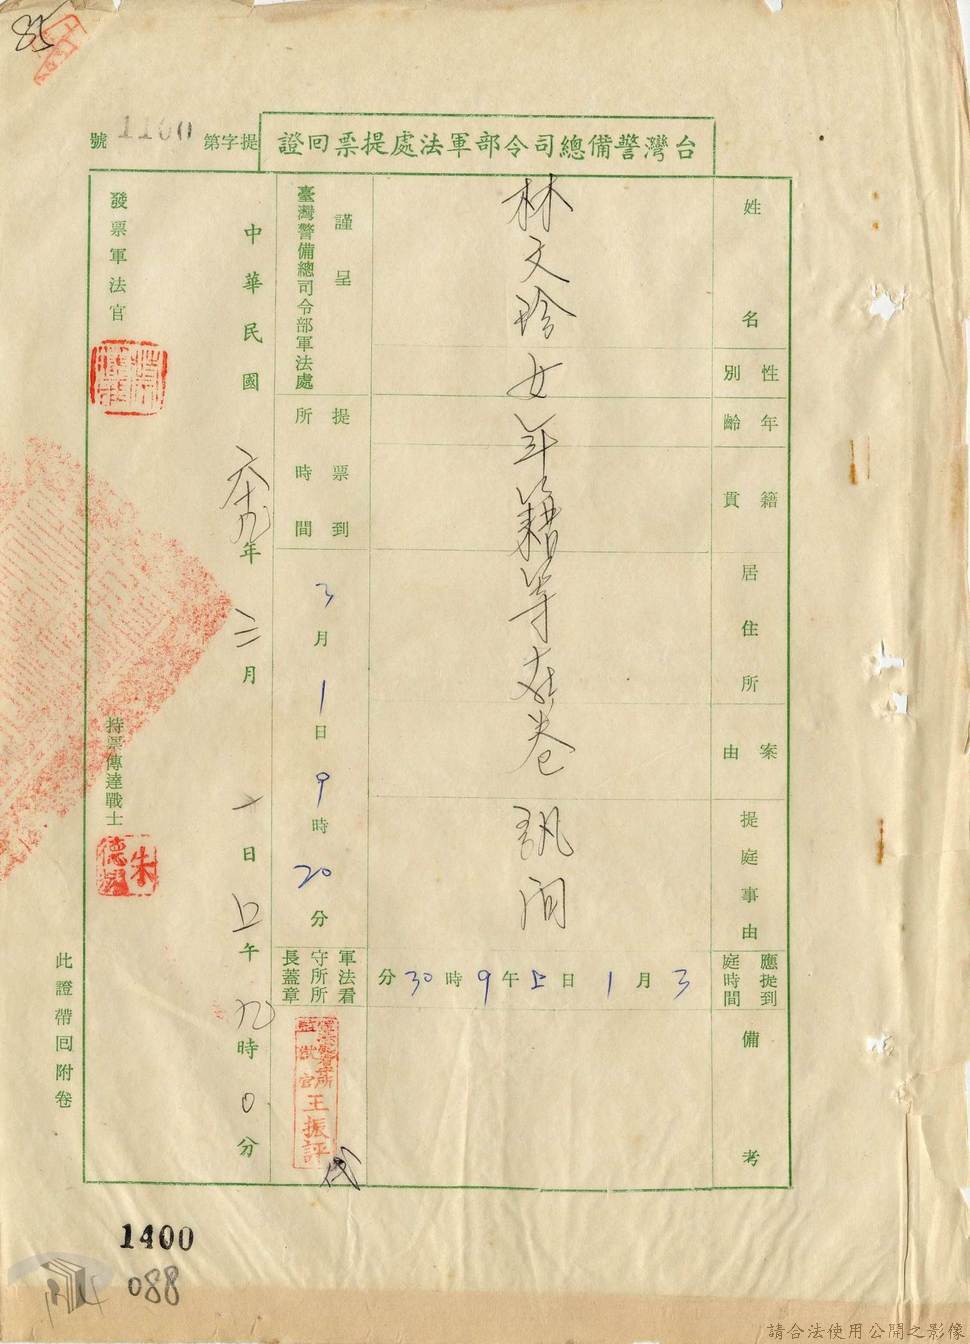 85
台灣警備總司令部軍法處提票回證
提字第1100號
姓名
林文玲
性別
女
年齡
年
籍貫
籍
居住所
等在卷
案由
提庭事由
訊問
應提到庭時間
3月1日上午9時30分
備考
謹呈
臺灣警備總司令部軍法處
提票到所時間
3月1日9時20分
軍法看守所所長蓋章
軍法處看守所
監獄官王振評
代
中華民國六十九年三月一日上午九時0分
發票軍法官
持票傳達戰士
朱德
此證帶回附卷
1400
088
請合法使用公開之影像